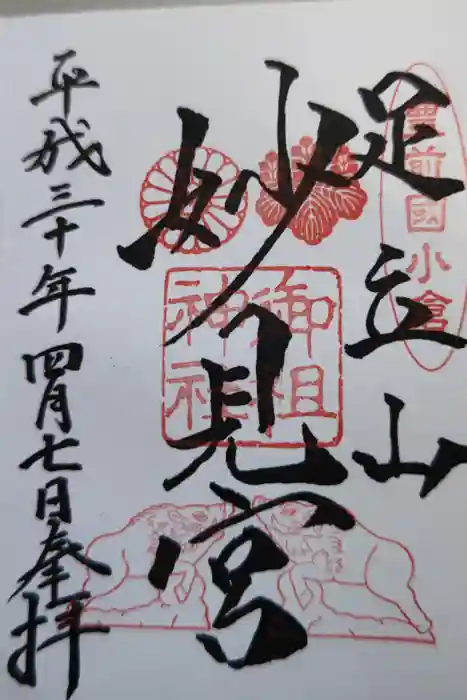 豊前國小倉
足立山
妙見宮
御祖神社
平成三十年四月七日奉拝